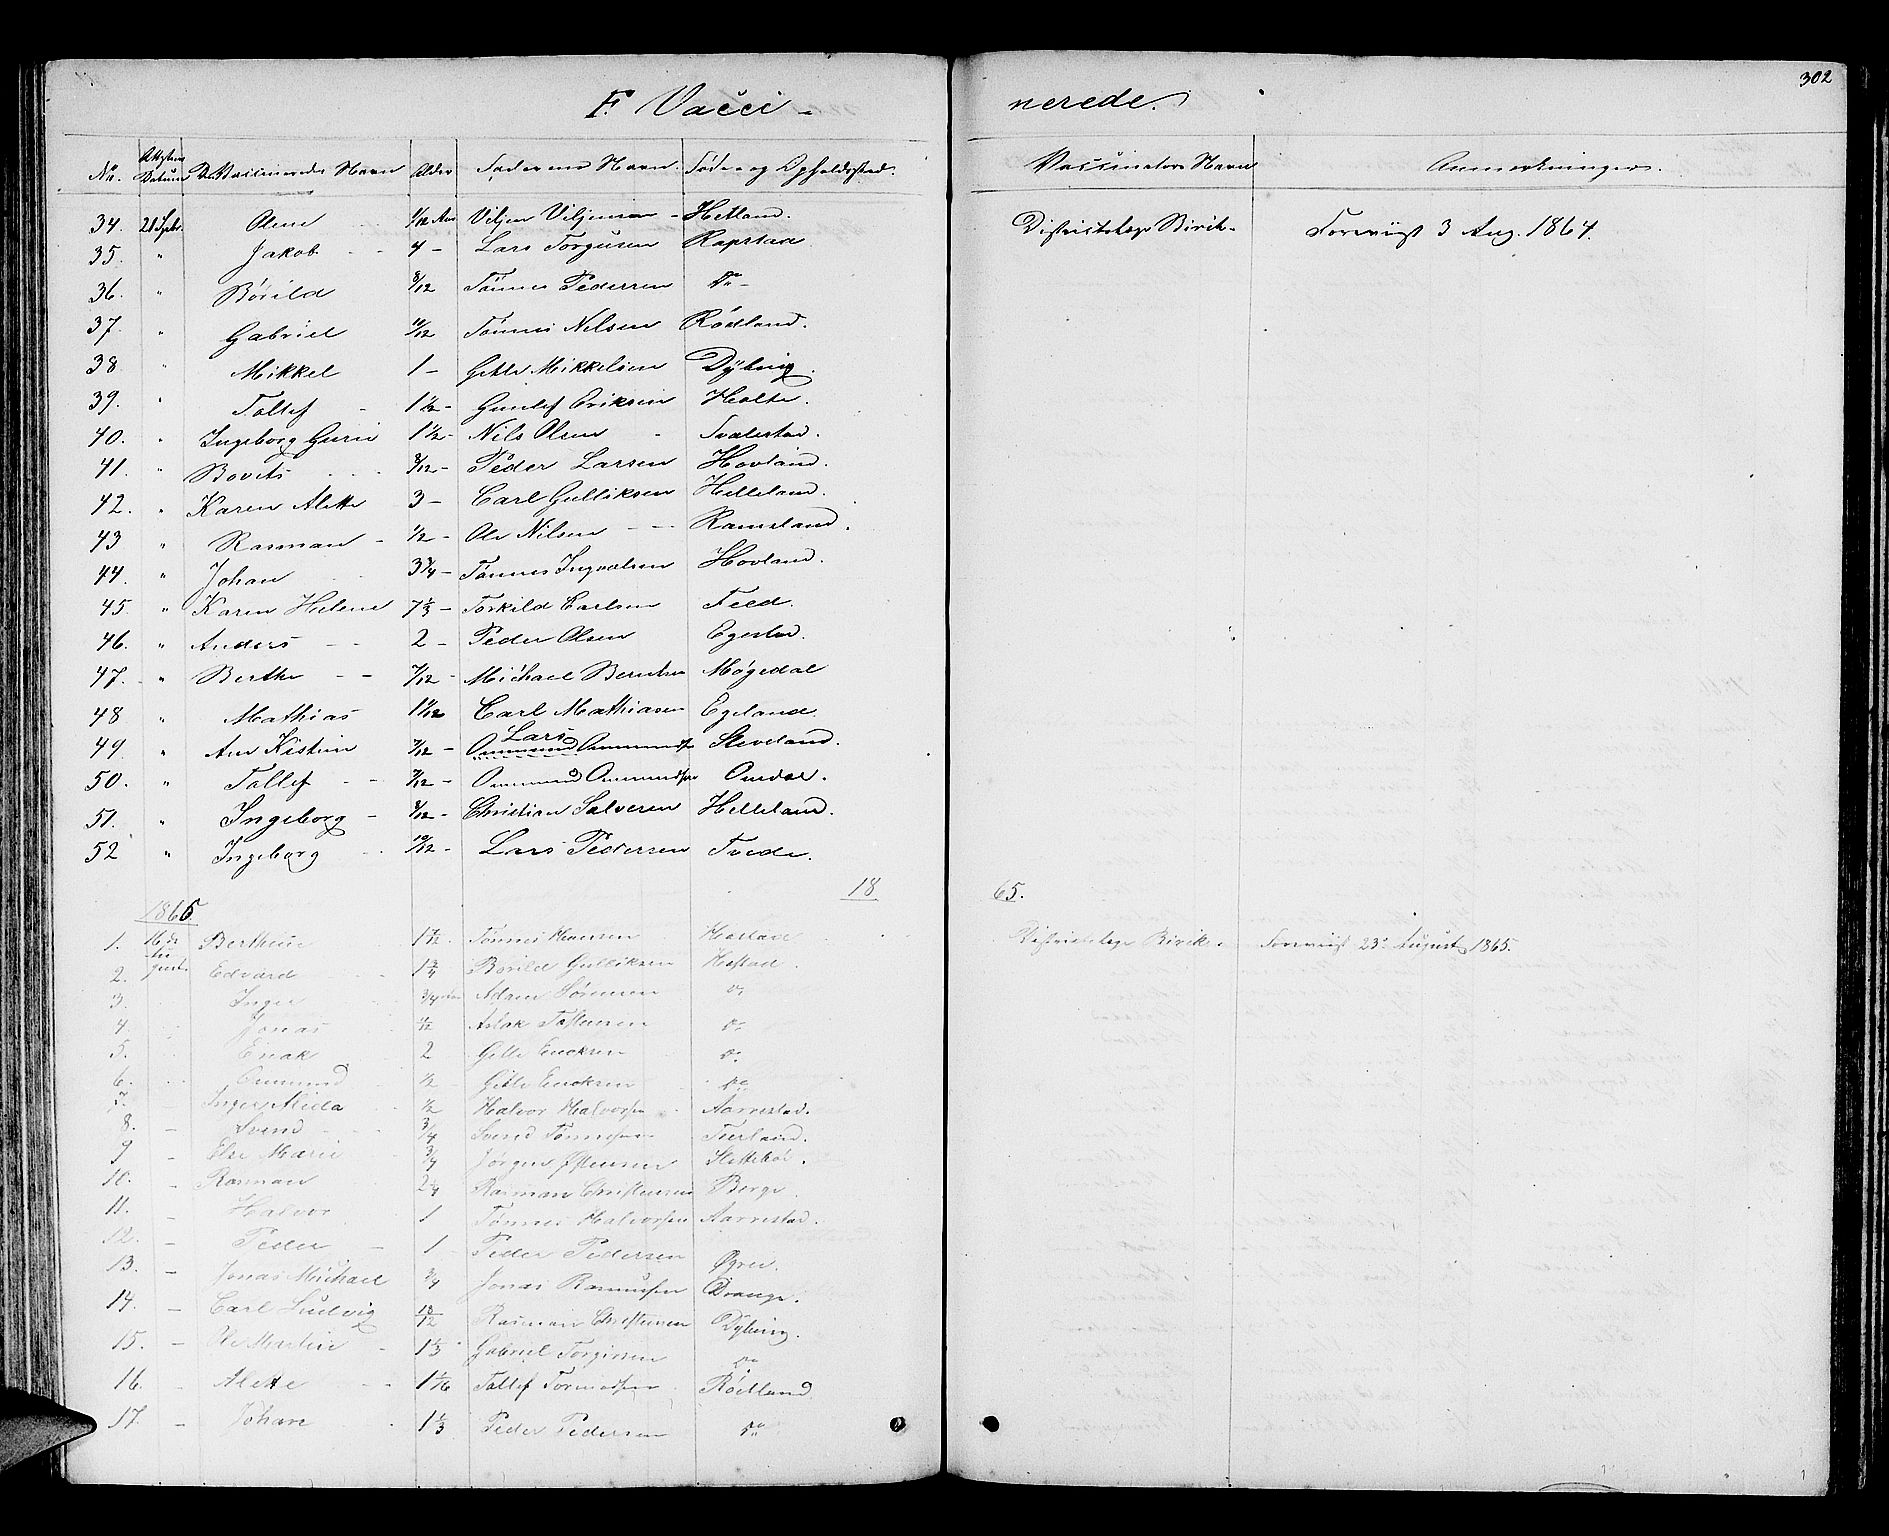 302
F. Vacci-nerede.
No. Attestens Datum De Vaccineredes Navn Alder Faderens Navn. Føde- og Opholdssted. Vaccinators Navn Anmærkninger.
34. 28 Septbr. Olene 1/12 Aar Viljem Viljemsen - Hetland. Districtslæge Birch- Foreviist 3 Aug. 1864.
35. " Jakob - - 4 - Lars Torgusen Rapstad
36. " Børild 8/12 Tønnes Pedersen Do-
37. " Gabriel 10/12 Tønnes Nilsen Rødland.
38 " Mikkel 1 - Gitle Mikkelsen Dybing.
39. " Tollef - 1 1/2 - Guntlef Eriksen Holte.
40. " Ingeborg Gurie 1 1/2 - Nils Olsen - Tvalestad.
41. " Bovits - - - 8/12 - Peder Larsen Hovland.
42. " Karen Alette 3 - Carl Gulliksen Helleland.
43 " Rasman - 1/2 - Ole Nilsen - - - Ramsland.
44. " Johan 3 3/4 - Tønnes Ingvalsen Hovland.
45. " Karen Helene 7 1/3 - Torkild Carlsen Feed.
46. " Anders - - 2 - Peder Olsen Egestad.
47. - " Berthe - - 7/12 - Michael Berntsen Møgedal
48 " Mathias 1 1/12 Carl Mathiasen Egeland.
49 " Ane Kistine 7/12 - Lars Ommund Ommundsn Sleveland.
50. " Tollef - - 7/12 - Ommund Ommundsen Omdal.
51. " Ingeborg - 8/12 - Christian Salvesen Helleland.
52 " Ingeborg - - 10/12 - Lars Pedersen Tvede.
18 65.
1865.
1. 16de Berthine 1 7/12. Tønnes Hansen Hæstad Districtslæge Birch - Foreviist 23de August 1865.
2. Au gust. Edvard 1 3/4 Børild Gulliksen Hæstad.
3. Inger 3/4 Aar Adam Sørensen Do
4. Jonas 4/12 Aslak Tollevsen Do
5. Enok 2 Gitle Enoksen Do
6. Ommund 1/2 Gitle Enoksen Do
7. - Inger Alida 1/2 Halvor Halvorsen Aarrestad.
8. - Svend 3/4 Svend Tønnesen Tierland.
9 - Else Marie 3/4 Jørgen Østensen Slettebøe.
10. - Rasman 2 1/4 Rasman Christensen Berge.
11. - Halvor 1 Tønnes Halvorsen Aarrestad.
12. - Peder - 1 - Peder Pedersen Øgrei.
13. - Jonas Michael 3/4 Jonas Rasmussen Drange.
14. - Carl Ludvig 10/12 Rasman Christensen Dybing.
15. - Ole Martin - 1 1/3 Gabriel Torgirsen Do
16. - Alette - - 1 1/6 Tollef Tormodsen Rødland
17. - Johan 1 1/3 Peder Pedersen Do